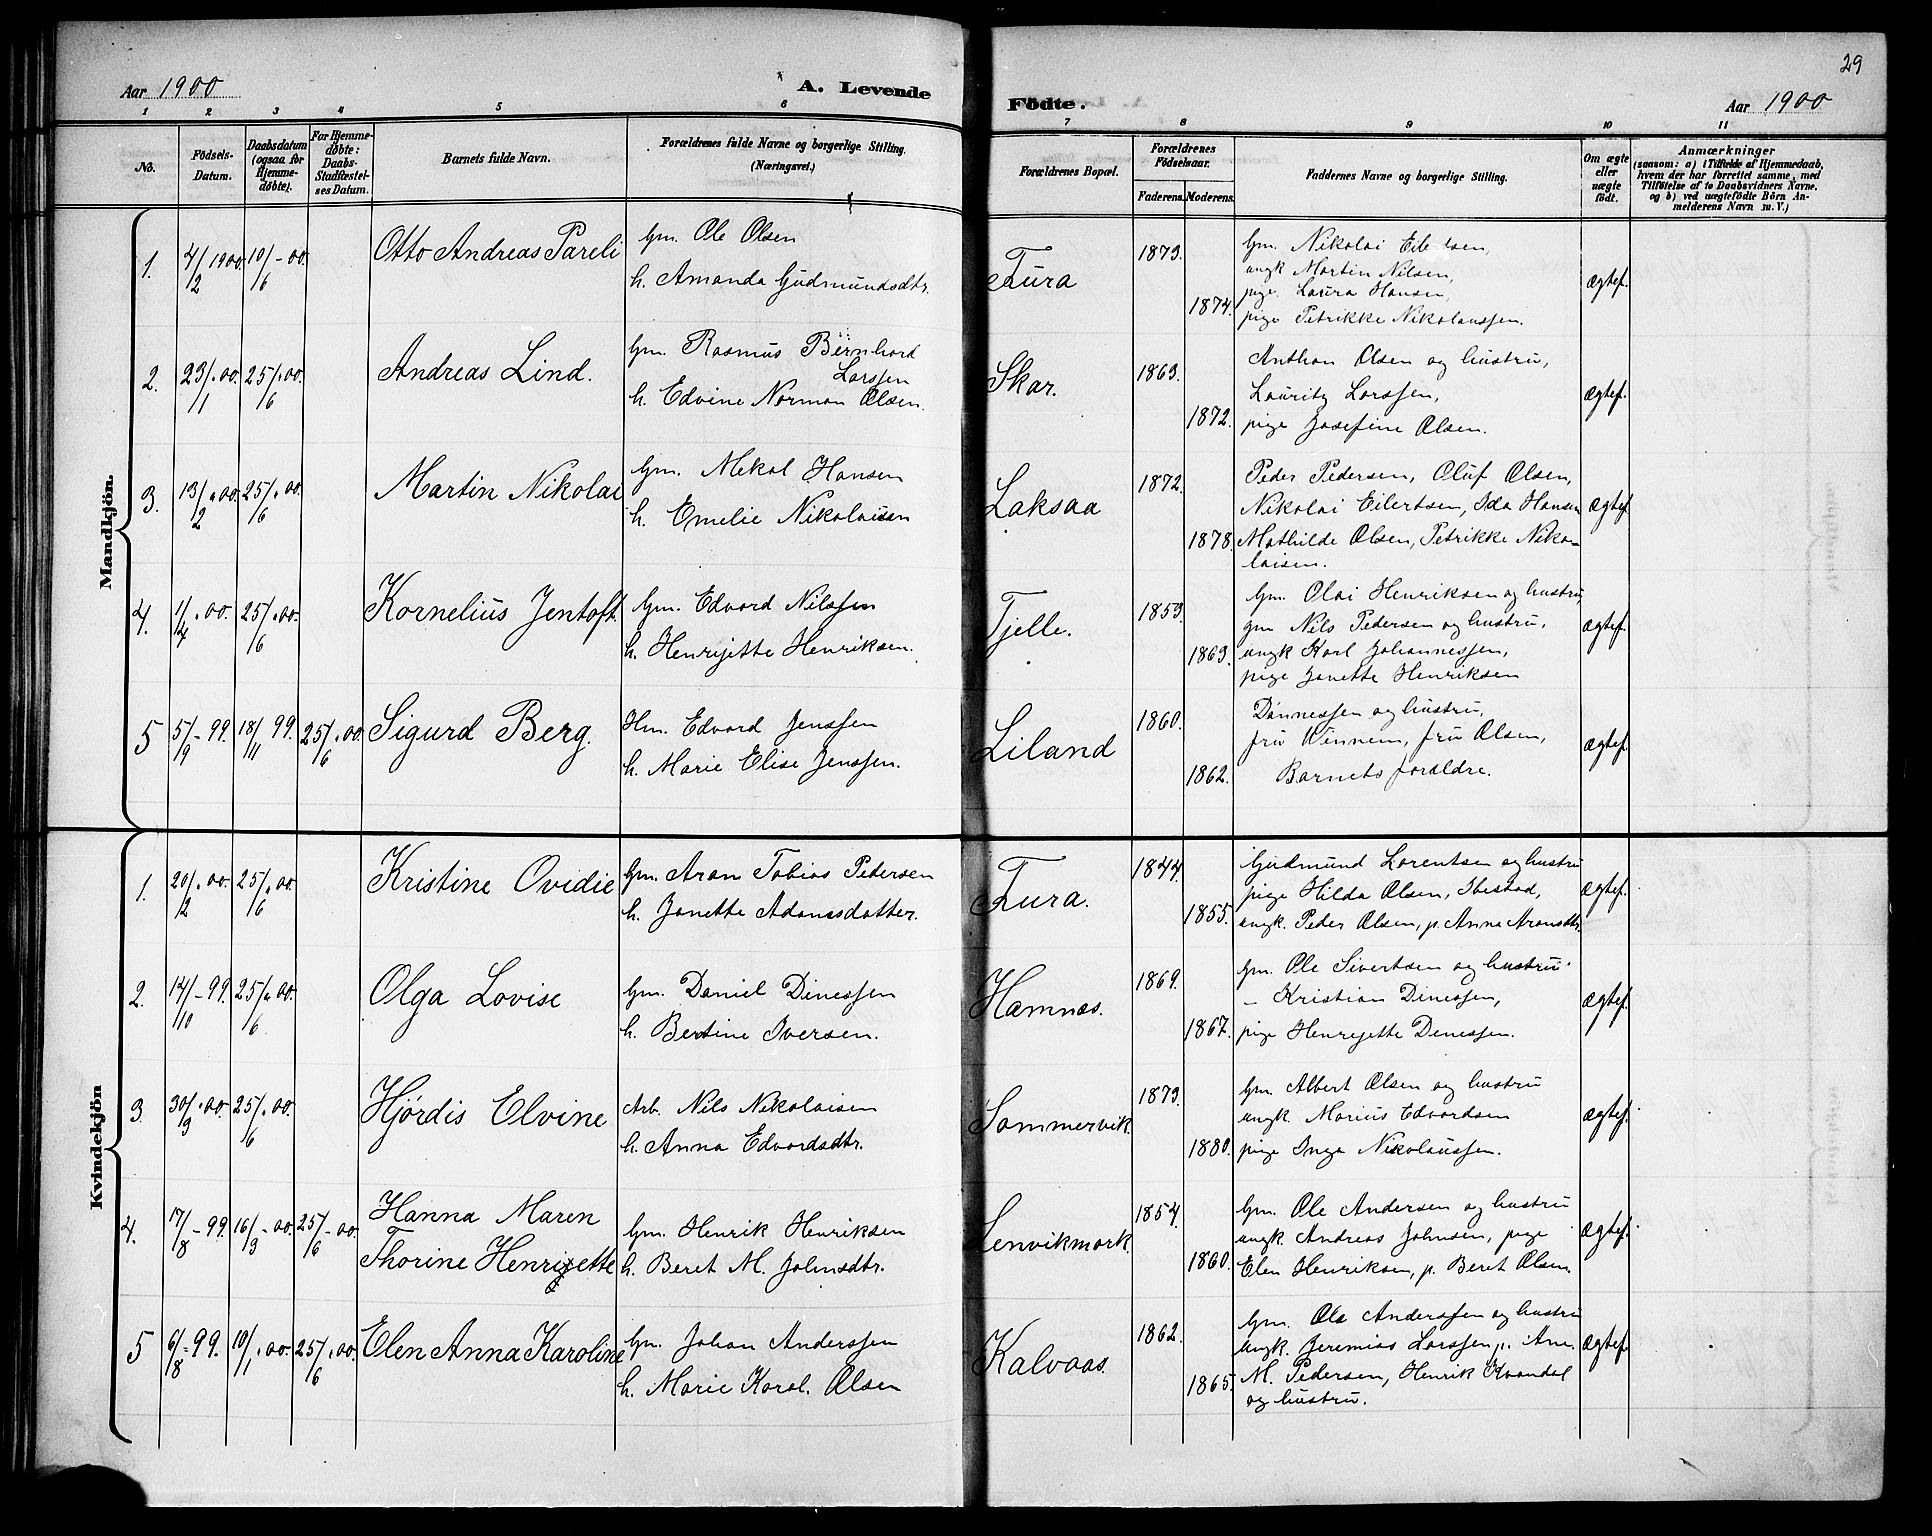 29
Aar 1900
A. Levende
Födte.
Aar 1900
1 2 3 4 5 6 7 8 9 10 11
No.
Födsels-
Datum.
Daabsdatum
(ogsaa for
Hjemme-
döbte).
For Hjemme-
döbte:
Daabs-
Stadfæstel-
ses Datum.
Barnets fulde Navn.
Forældrenes fulde Navne og borgerlige Stilling.
(Næringsvei.)
Forældrenes Bopæl.
Forældrenes
Födselsaar.
Faderens. Moderens.
Faddernes Navne og borgerlige Stilling.
Om ægte
eller
uægte
födt.
Anmærkninger
(saasom: a) i Tilfælde af Hjemmedaab,
hvem der har forrettet samme, med
Tilföielse af to Daabsvidners Navne,
og b) ved uægtefödte Börn An-
melderens Navn m. V.)
Mandkjön.
1. 4/2 1900. 10/6-00. Otto Andreas Pareli
Gm. Ole Olsen
h. Amanda Gudmundsdtr.
Tura
1873.
1874.
Gm. Nikolai
ungk Martin Nilsen,
pige. Laura Hansen,
pige Petrikke Nikolaussen.
ægtef.
2. 23/11.00. 25/6.00. Andreas Lind.
Gm. Rasmus Bernhard
Larssen
h. Edvine Norman Olsen.
Skar.
1863.
1872.
Anthon Olsen og hustru,
Lauritz Larssen,
pige Josefine Olsen.
ægtef.
3. 13/2.00. 25/6.00. Martin Nikolai
Gm. Mekal Hansen
h. Emelie Nikolaisen
Laksaa
1872.
1878.
Peder Pedersen, Oluf Olsen,
Nikolai Eilertsen, Ida Hansen
Mathilde Olsen, Petrikke Niko-
laisen.
ægtef.
4. 1/4.00. 25/6.00. Kornelius Jentoft.
Gm. Edvard Nilssen
h. Henrijette Henriksen.
Tjelle.
1853.
1863.
Gm. Olai Henriksen og hustru,
gm Nils Pedersen og hustru,
ungk Karl Johannessen,
pige Janette Henriksen
ægtef.
5 5/9-99. 18/11 99. 25/6.00. Sigurd Berg.
Hm. Edvard Jenssen
h. Marie Elise Jenssen.
Liland
1860.
1862.
Dönnessen og hustru,
fru Winnem, fru Olsen,
Barnets forældre.
ægtef.
Kvindekjön
1. 20/2.00. 25/6.00. Kristine Ovidie
Gm. Aron Tobias Pedersen
h. Janette Adamsdatter.
Tura.
1844.
1855.
Gudmund Lorentsen og hustru
pige Hilda Olsen, Ibestad,
ungk. Peder Olsen, p. Anna Aronsdtr.
ægtef.
2. 14/10-99. 25/6.00. Olga Lovise
Gm. Daniel Dinessen
h. Bertine Iversen.
Hamnæs.
1869.
1867.
Gm. Ole Sivertsen og hustru
– Kristian Dinessen,
pige Henrijette Denessen.
ægtef.
3. 30/3.00. 25/6.00. Hjördis Elvine
Arb. Nils Nikolaisen
h. Anna Edvardsdtr.
Sommervik.
1873.
1880.
Gm. Albert Olsen og hustru
ungk. Marius Edvardsen
pige Inga Nikolaussen.
ægtef.
4. 17/8-99. 16/3-00. 25/6-00. Hanna Maren
Thorine Henrijette
Gm. Henrik Henriksen
h. Beret M. Johnsdtr.
Lenvikmark.
1854.
1860.
Gm. Ole Andersen og hustru
ungk. Andreas Johnsen, pige
Elen Henriksen, p. Beret Olsen.
ægtef.
5 6/8-99. 10/1.00. 25/6.00. Elen Anna Karoline
Gm. Johan Anderssen
h. Marie Karol. Olsen
Kalvaas.
1862.
1865.
Gm. Ole Anderssen og hustru
ungk. Jeremias Larssen, p. Ane.
M. Pedersen, Henrik Kvandal
og hustru.
ægtef.